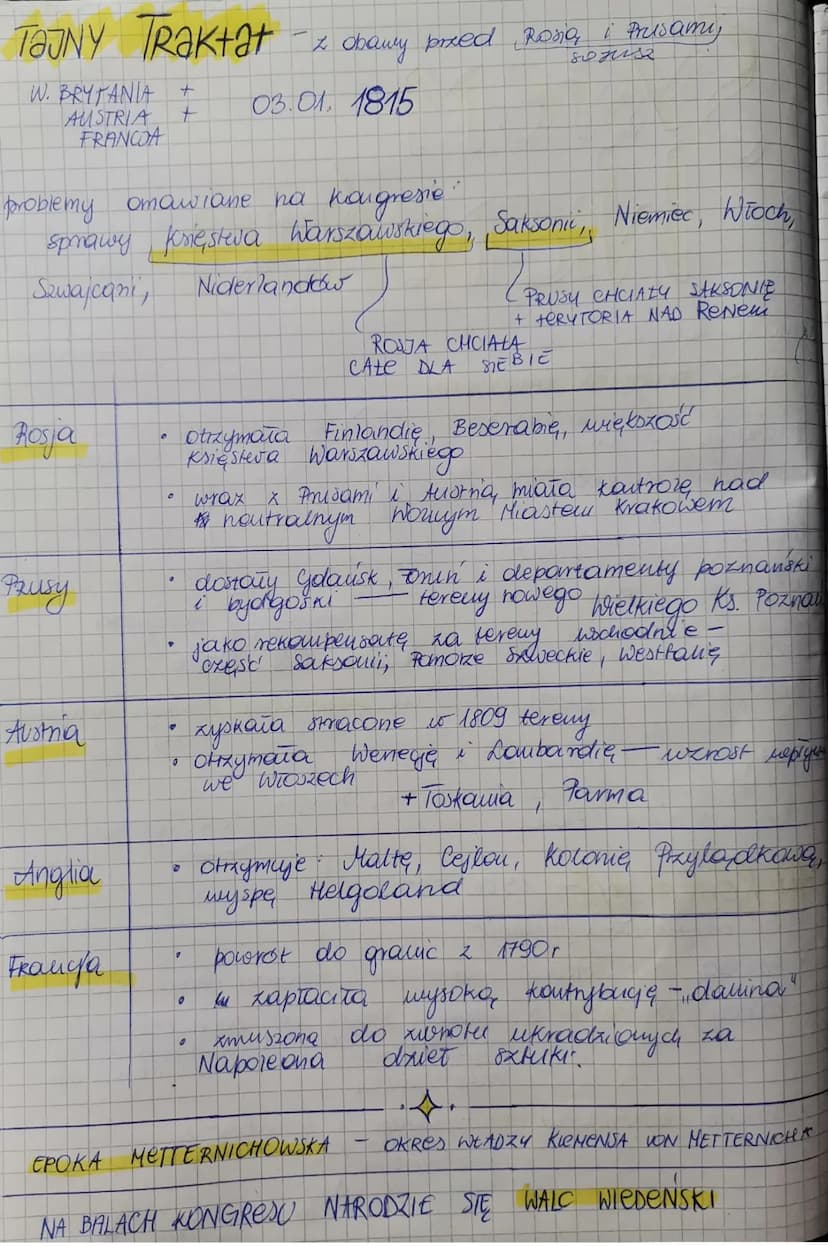 TAJNY TRAKTAT – z obawy przed Rosją i Prusami,
sojusz
W. BRYTANIA +
AUSTRIA +
FRANCJA
03.01. 1815
problemy omawiane na kongresie:
sprawy Księstwa Warszawskiego, Saksonii, Niemiec, Włoch,
Szwajcarii, Niderlandów
PRUSY CHCIAŁY SAKSONIĘ
+ TERYTORIA NAD RENEM
ROSJA CHCIAŁA
CAŁE DLA SIEBIE
Rosja
• otrzymała Finlandię, Besarabię, większość
Księstwa Warszawskiego
• wraz z Prusami i Austrią miała kontrolę nad
neutralnym Wolnym Miastem Krakowem
Prusy
• dostały Gdańsk, Toruń i departamenty poznański
i bydgoski — tereny nowego Wielkiego Ks. Poznań
• jako rekompensatę za tereny wschodnie –
część Saksonii, Pomorze Szweckie, Westfalię
Austria
• zyskała stracone w 1809 tereny
• otrzymała Wenecję i Lombardię — wzrost wpływ
we Włoszech
+ Toskania, Parma
Anglia
• otrzymuje: Maltę, Cejlon, Kolonię Przylądkową,
wyspę Helgoland
Francja
• powrót do granic z 1790r
• zapłaciła wysoką kontrybucję – „danina"
• zmuszona do zwrotu ukradzionych za
Napoleona dzieł sztuki.
EPOKA METTERNICHOWSKA – OKRES WŁADZY KLEMENSA VON METTERNICHA
NA BALACH KONGRESU NARODZIŁ SIĘ WALC WIEDEŃSKI